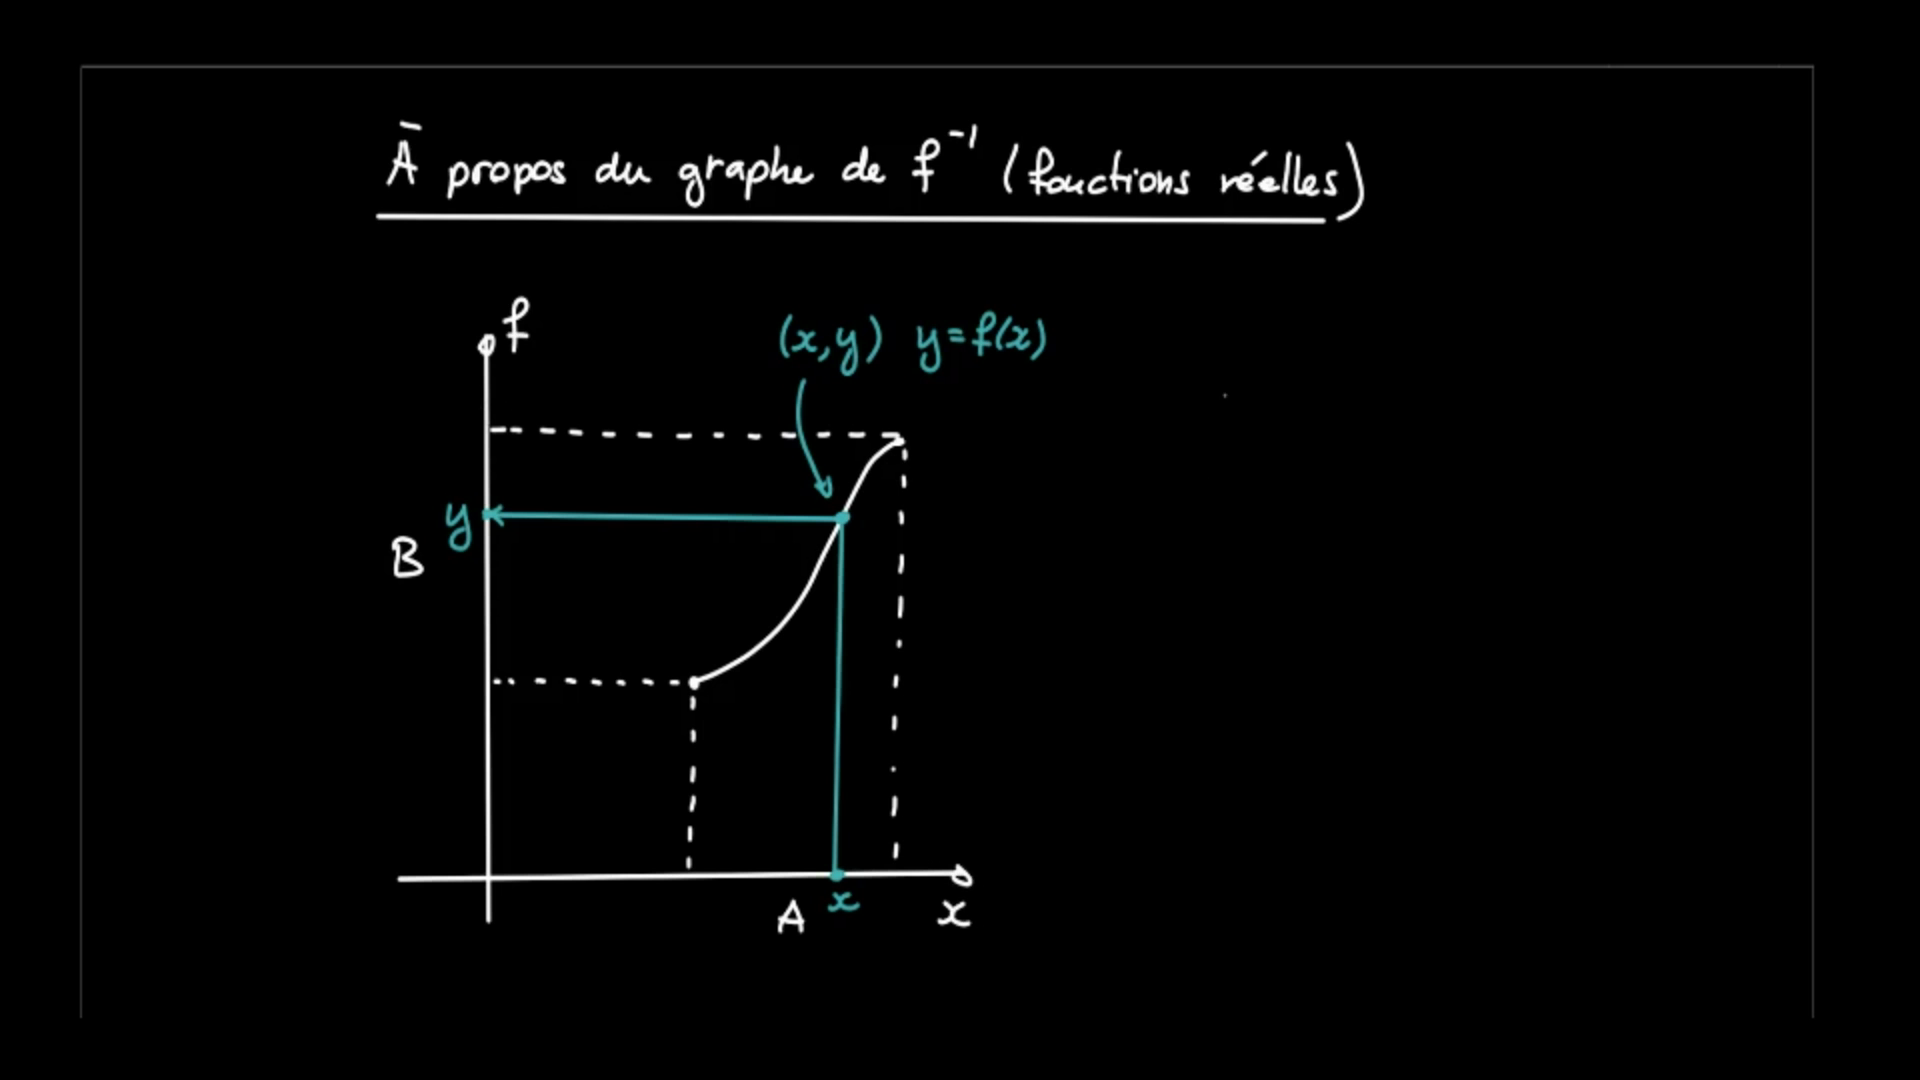 À propos du graphe de f⁻¹ (fonctions réelles)
f
(x,y) y=f(x)
y
B
A x x